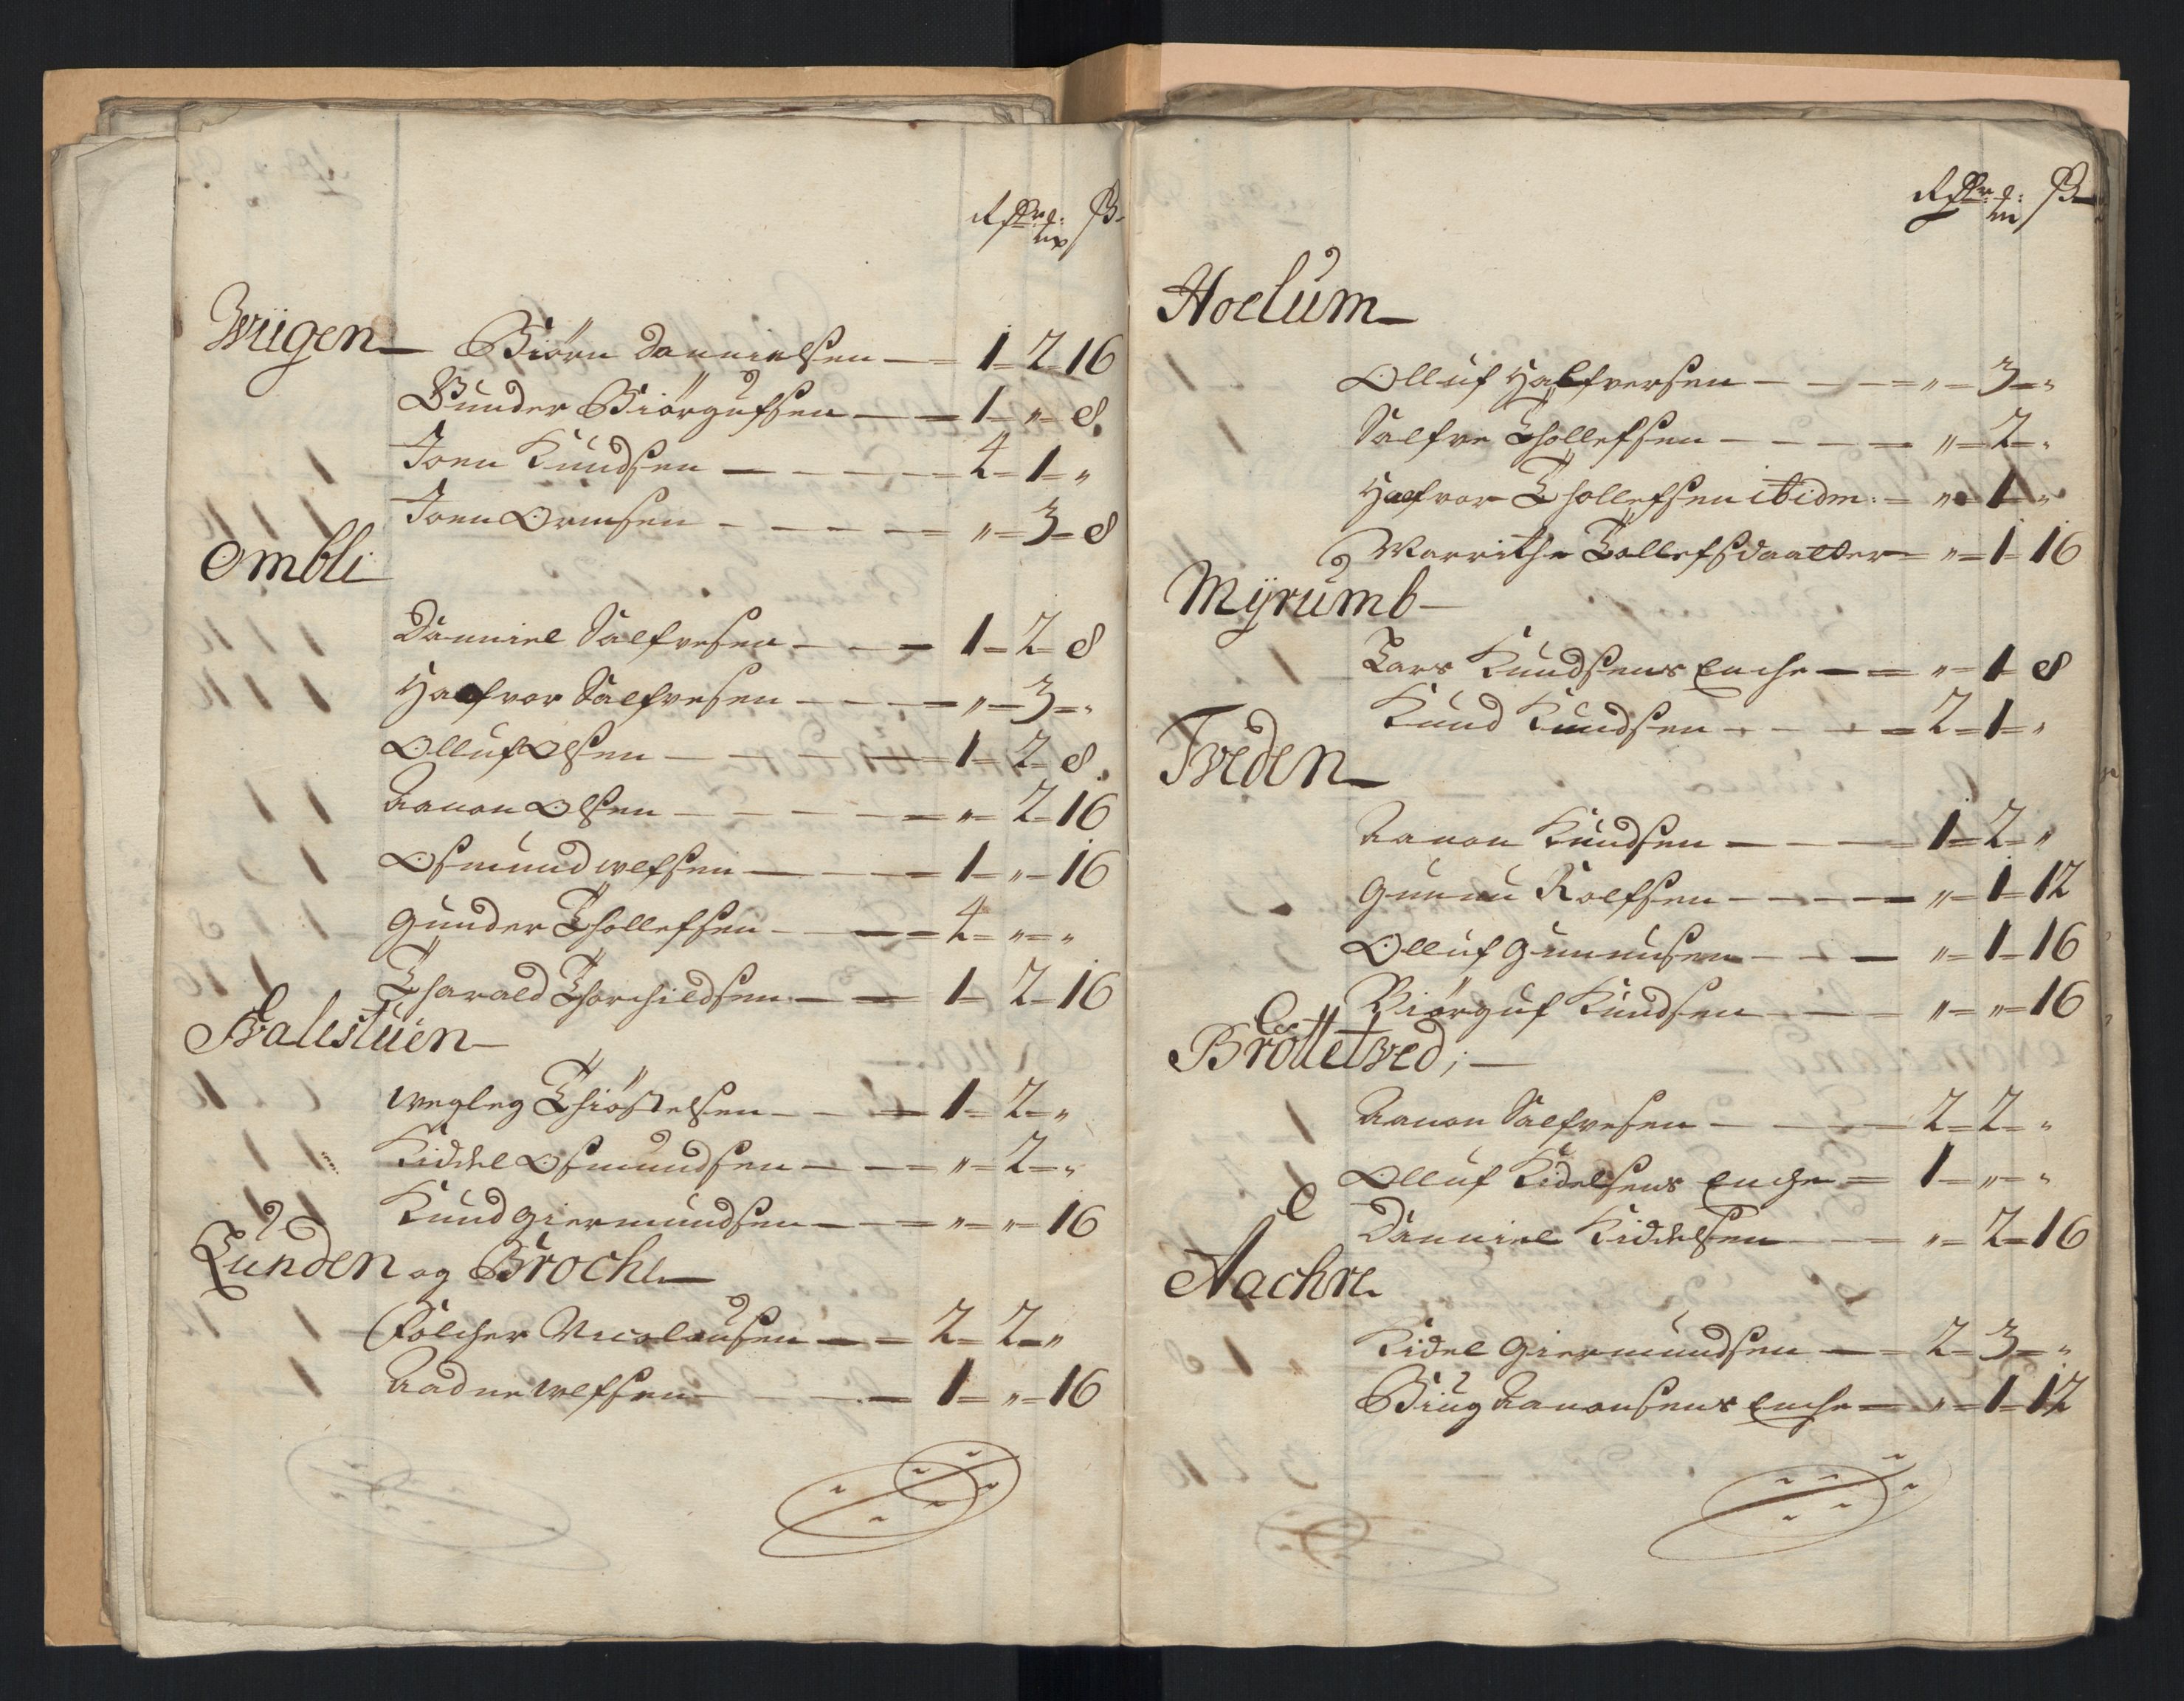 Rdr. ort. ß
Wiigen — Biörn Dannielsen — 1 - 2 - 16
Gunder Biörgufsen — 1 - " - 8
Joen Knudsen — 4 - 1 - "
Joen Ormsen — " - 3 - 8
Ombli
Danniel Salfvesen — 1 - 2 - 8
Halfvor Salfvesen — " - 3 - "
Olluf Olsen — 1 - 2 - 8
Aanon Olsen — " - 2 - 16
Osmund Welfsen — 1 - " - 16
Gunder Thollefsen — 4 - " - "
Tharald Thorchildsen — 1 - 2 - 16
Hvalestuen
Wegleg Thiöstelsen — 1 - 2 - "
Kiddel Osmundsen — " - 2 - "
Knud Giermundsen — " - " - 16
Lunden og Broche
Folcher Nicolausen — 2 - 2 - "
Aadne Welfsen — 1 - " - 16
Rdr. ort. ß
Hoelum
Olluf Halfversen — " - 3 - "
Salfve Thollefsen — " - 2 - "
Halfvor Thollefsen ibidm: — " - 1 - "
Marrithe Tollefsdaatter — " - 1 - 16
Mÿrumb
Lars Knudsens Enche — " - 1 - 8
Knud Knudsen — 2 - 1 - "
Tveden
Aanon Knudsen — 1 - 2 - "
Gunnu Rolfsen — " - 1 - 12
Olluf Gunnusen — " - 1 - 16
Biörguf Knudsen — " - " - 16
Bröttetved ; —
Aanon Salfvesen — 2 - 2 - "
Olluf Kidelsens Enche — 1 - " - "
Danniel Kiddelsen — " - 2 - 16
Aachre
Kidel Giermundsen — 2 - 3 - "
Biug Aanonsens Enche — " - 1 - 12